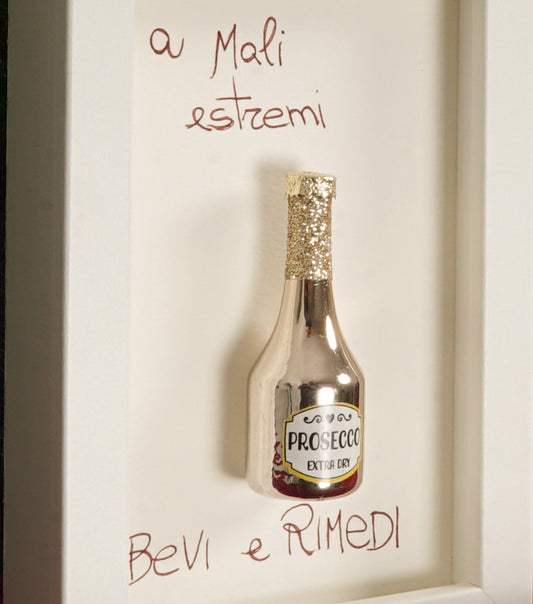 a Mali
estremi
PROSECCO
EXTRA DRY
BeVI e RIMeDI